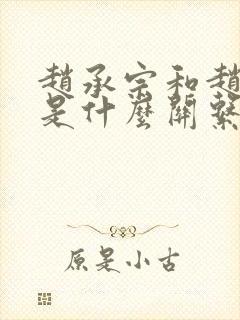 趙承宗和趙
是什麼關繫
原是小古